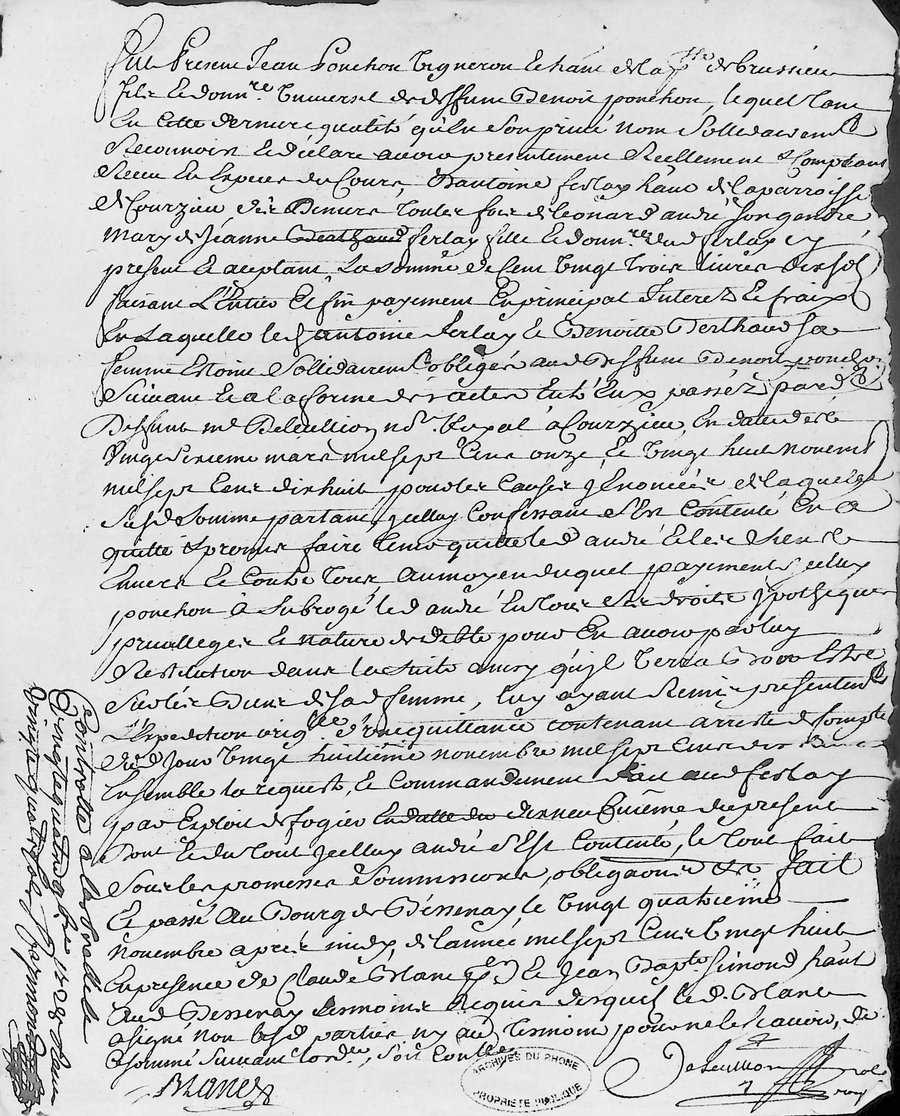 fut Present Jean Ponchon Vigneron hant de la psse de brussieu
fils et donnre universel de deffunt Benoit ponchon, lequel tant
En cette derniere qualité qu'En son privé nom Sollidairemt
Reconnoit et declare avoir presentement Reellement & Comptant
Receu En Especes du Cours, D'antoine ferlay hant de la parroisse
de Courzieu des Deniers toutes fois de leonard andré son gendre
mary de Jeanne Berthaud ferlay fille et donnre dud ferlay cy
present et aceptant La somme de Cent vingt trois livres dix sols
faisant L'Entier et fin payement En principal Interez et fraix
En laquelle led antoine ferlay et Benoitte Berthaud sa
femme Estoint Sollidairemt obligés aud deffunt Benoit ponchon
Suivant et a la forme des actes Entre Eux passéz pard
Deffunt me Deleullion nore Royal a Courzieu, En datte des
vingt sixieme mars mil sept Cent onze, et vingt huit novemb
mil sept Cent dix huit pour les Causes y Enoncées de laquelle
susd somme partant jcelluy Confessant s'Est Contenté En a
quitté & promis faire tenir quitte led andré et les siens
Envers et Contre tous au moyen duquel payement jcelluy
ponchon à Subrogé led andré En tous ses droits ypotheques
privilleges et nature de debte pour En avoir par luy
Restitution dans la suitte ainsy qu'jl verra Bon Estre
Sur les Biens de sad femme, luy ayant Remis presentemt
L'Expedition origlle d'jcquittance Contenant arresté de Compte
dud Jour vingt huitième novembre mil sept Cent dix huit
Ensemble la requeste, et Commandement fait aud ferlay
par Exploit de fogier En datte du dixneu fvieme du present
Dont et du tout jcelluy andré s'Est Contenté, le tout fait
sous les promesses soumissions, obligaons &c fait
et passé au Bourg de Bessenay le vingt quatrième
novembre après midy de l'année mil sept Cent vingt huit
En presence de Claude Blanc et Jean Bapte Simond hant
aud Bessenay temoins Requis desquels led Blanc
a signé non lesd parties ny aud temoin pour ne le scavoir, de
ce sommé suivant l'ordce, soit Contlle
Blanc
Deleullion
nore
roy
Controllé a Larbresle
vingt quatre sols
ARCHIVES DU RHONE
PROPRIETE PUBLIQUE